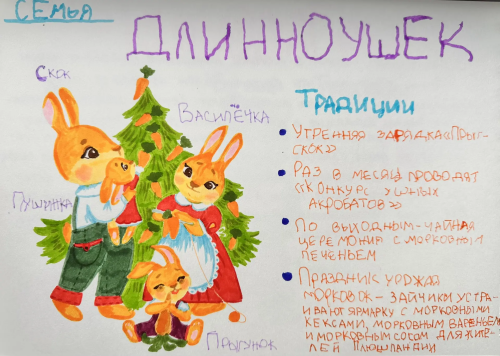 СЕМЬЯ
ДЛИННОУШЕК
Скок
Василёчка
Пушинка
Прыгунок
Традиции
Утренняя зарядка «Прыг-
скок»
Раз в месяц проводят
«Конкурс ушных
акробатов»
По выходным – чайная
церемония с морковным
печеньем
Праздник урожая
морковок – зайчики устра-
ивают ярмарку с морковными
кексами, морковным вареньем
и морковным соком для жите-
лей Плюшландии